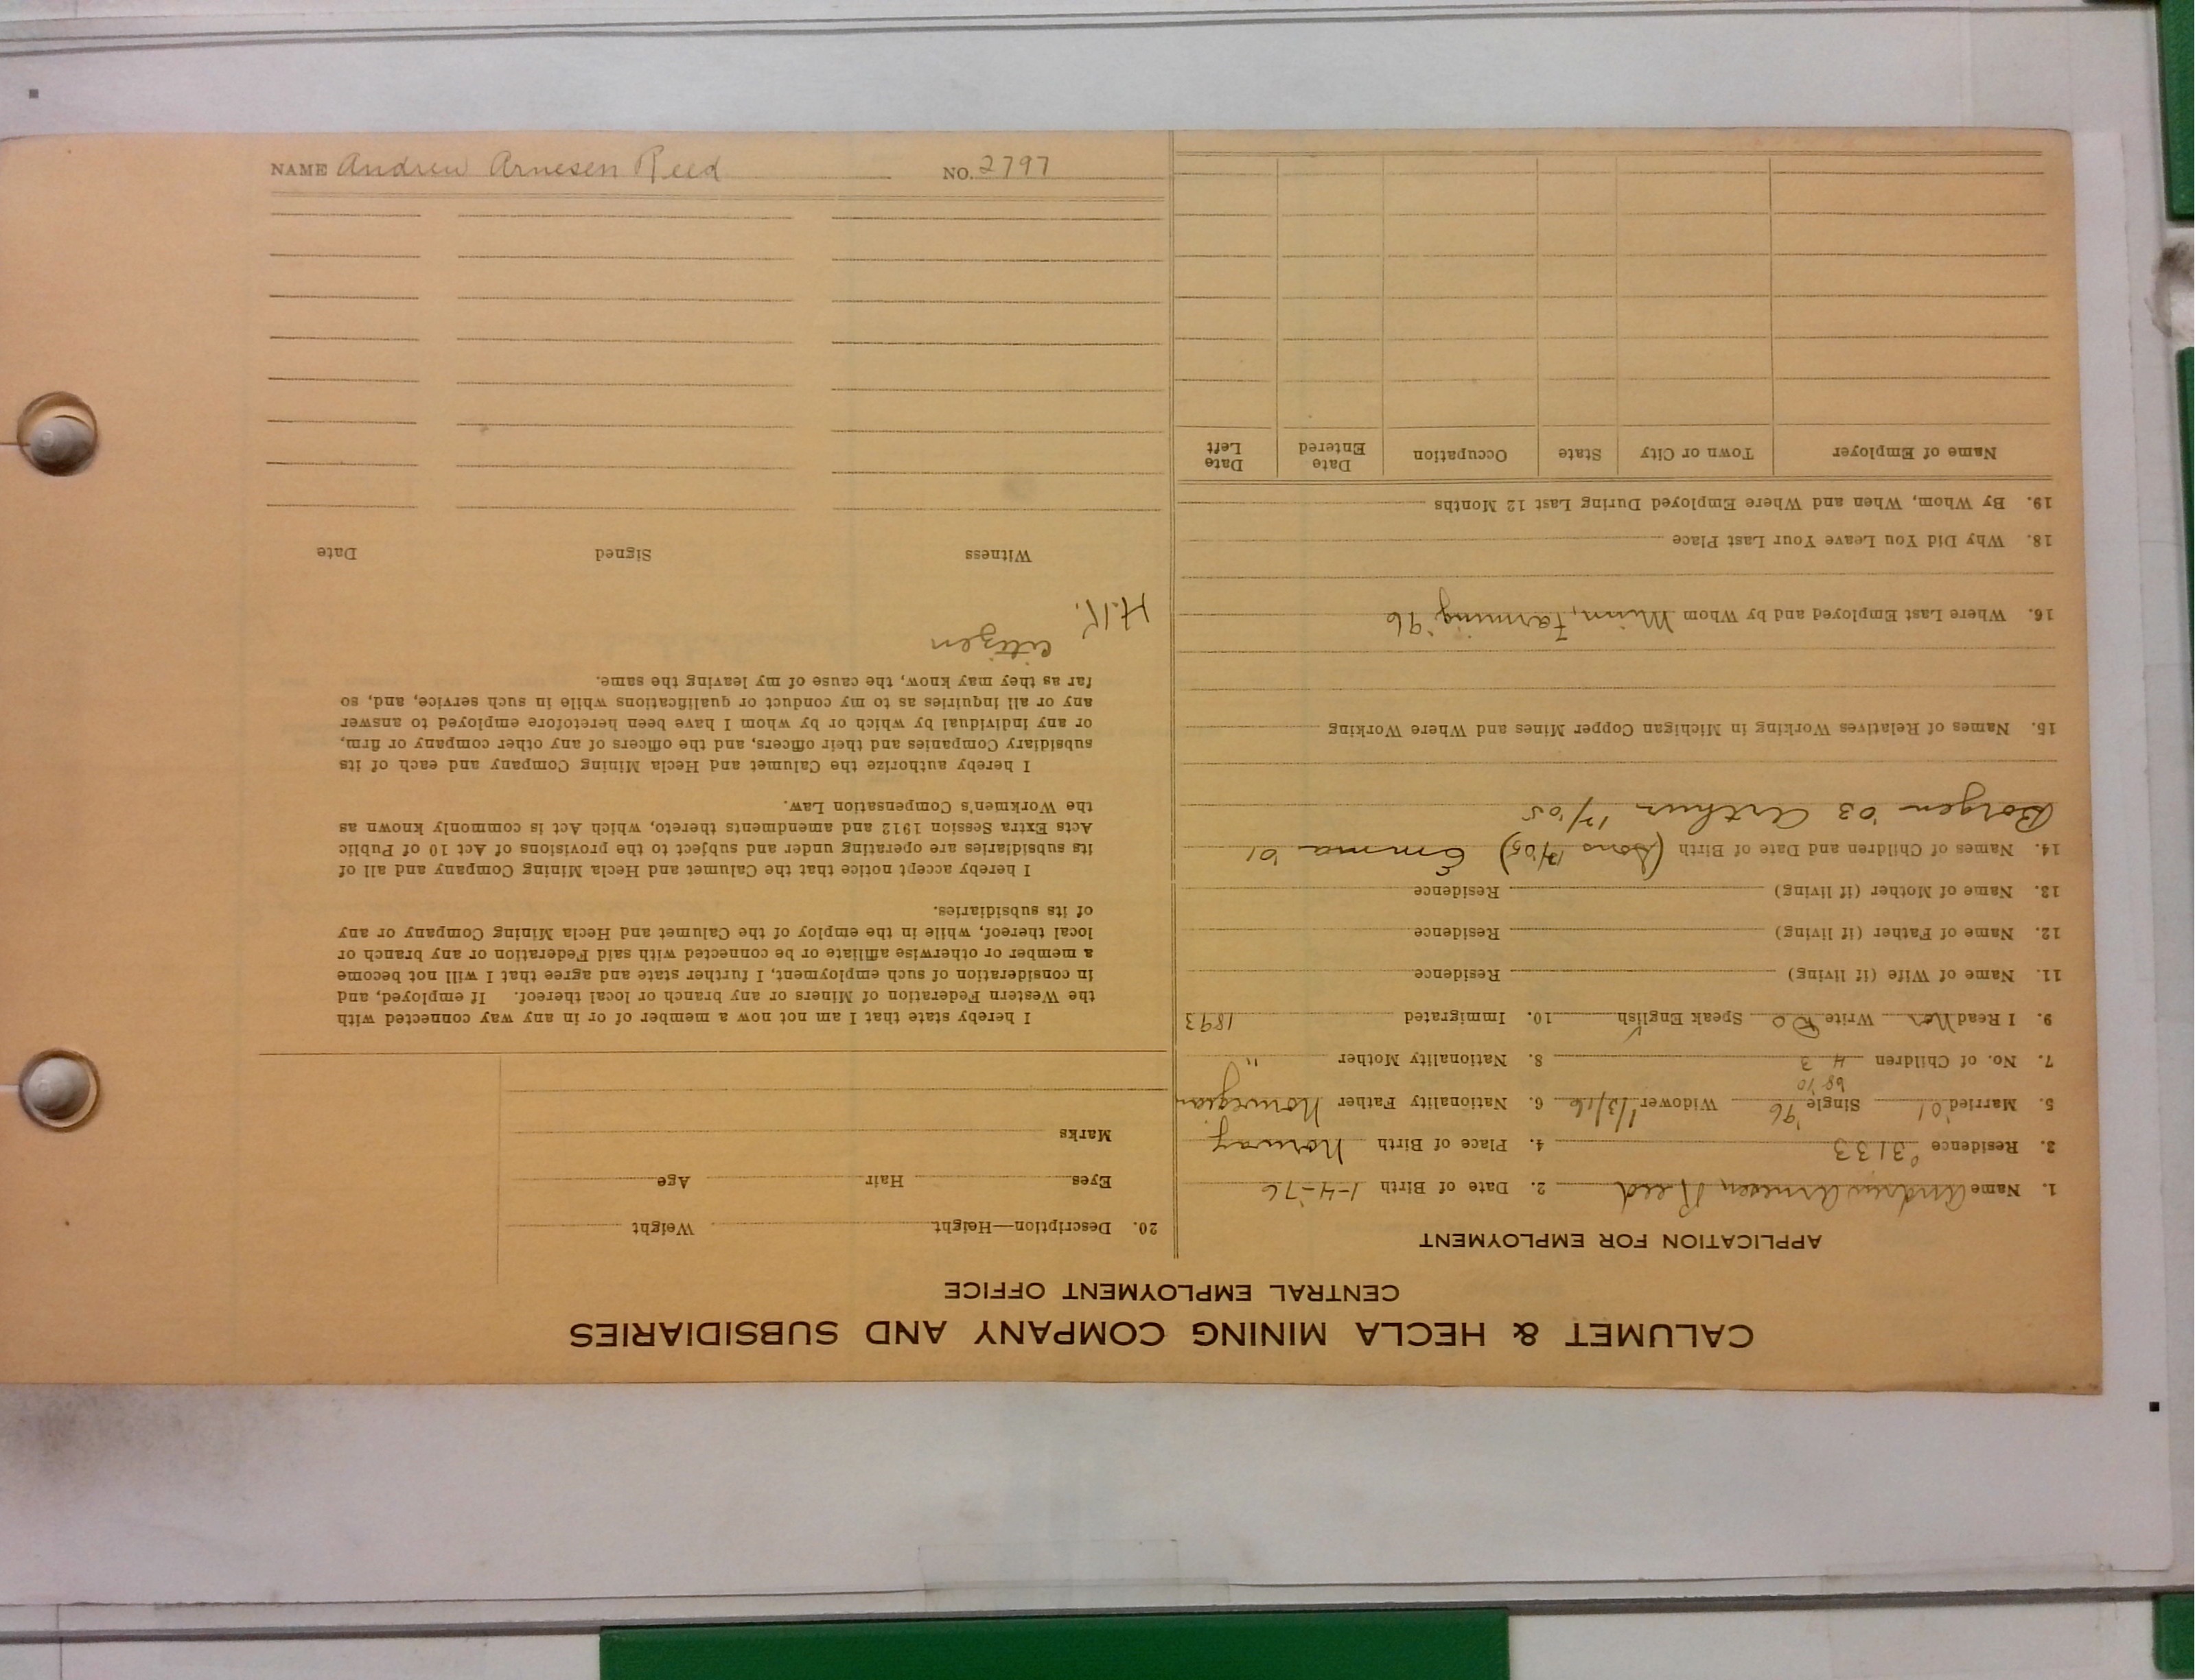 CALUMET & HECLA MINING COMPANY AND SUBSIDIARIES
CENTRAL EMPLOYMENT OFFICE
APPLICATION FOR EMPLOYMENT
1. Name Andrew Arnesen Reed 2. Date of Birth 1-4-76
3. Residence 3133 4. Place of Birth Norway
5. Married '01 Single '96 Widower 1/3/16 6. Nationality Father Norwegian
7. No. of Children 4 3 8. Nationality Mother "
9. I Read Nor Write Speak English 10. Immigrated 1893
11. Name of Wife (if living) Residence
12. Name of Father (if living) Residence
13. Name of Mother (if living) Residence
14. Names of Children and Date of Birth Emma '01
Borgen '03 Arthur 12/'05
15. Names of Relatives Working in Michigan Copper Mines and Where Working
16. Where Last Employed and by Whom Minn, Farming '96
18. Why Did You Leave Your Last Place
19. By Whom, When and Where Employed During Last 12 Months
Name of Employer Town or City State Occupation Date Entered Date Left
20. Description—Height Weight
Eyes Hair Age
Marks
I hereby state that I am not now a member of or in any way connected with
the Western Federation of Miners or any branch or local thereof. If employed, and
in consideration of such employment, I further state and agree that I will not become
a member or otherwise affiliate or be connected with said Federation or any branch or
local thereof, while in the employ of the Calumet and Hecla Mining Company or any
of its subsidiaries.
I hereby accept notice that the Calumet and Hecla Mining Company and all of
its subsidiaries are operating under and subject to the provisions of Act 10 of Public
Acts Extra Session 1912 and amendments thereto, which Act is commonly known as
the Workmen's Compensation Law.
I hereby authorize the Calumet and Hecla Mining Company and each of its
subsidiary Companies and their officers, and the officers of any other company or firm,
or any individual by which or by whom I have been heretofore employed to answer
any or all inquiries as to my conduct or qualifications while in such service, and, so
far as they may know, the cause of my leaving the same.
citizen
H.K.
Witness Signed Date
NAME Andrew Arnesen Reed NO. 2797